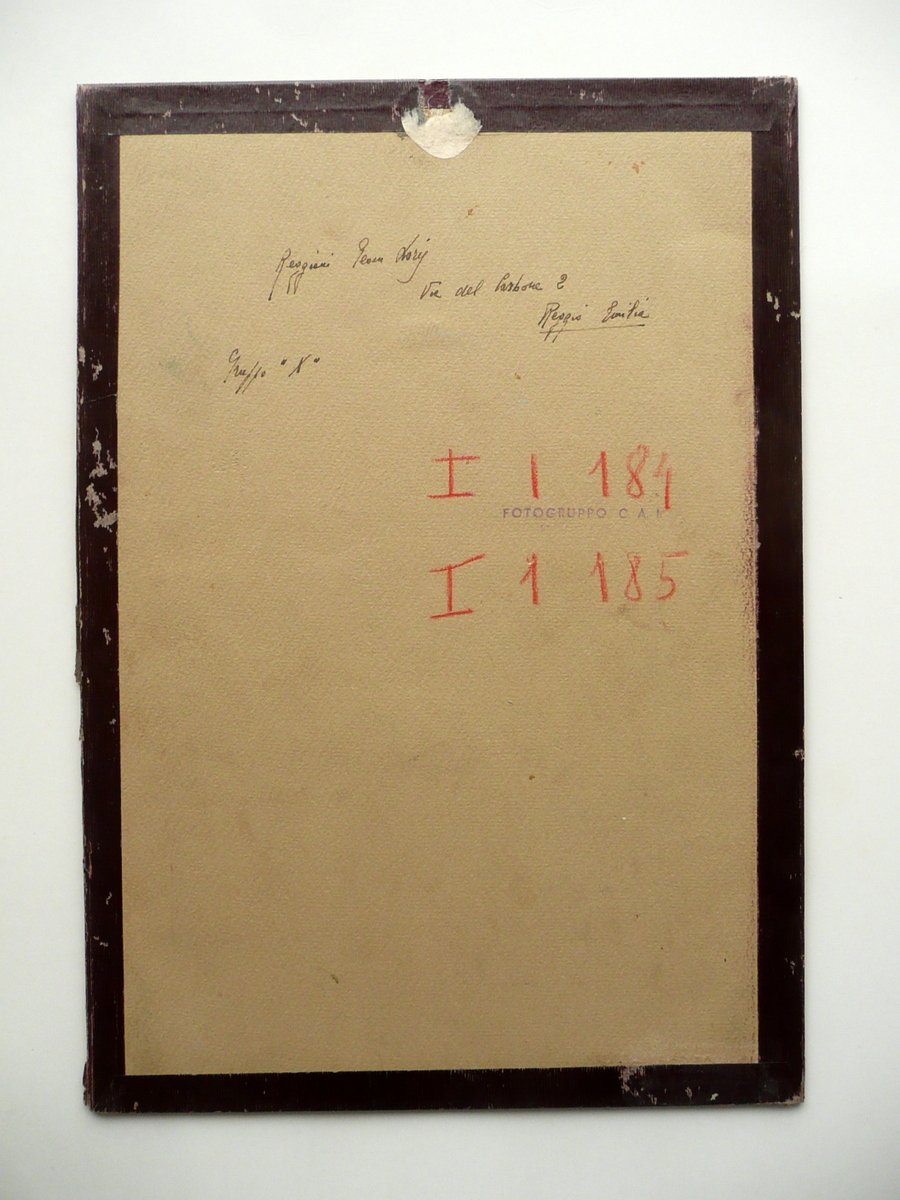 Reggiani Geom Lorij
Via del Carbone 2
Reggio Emilia
Gruppo "X"
I 1 184
FOTOGRUPPO C.A.I.
I 1 185